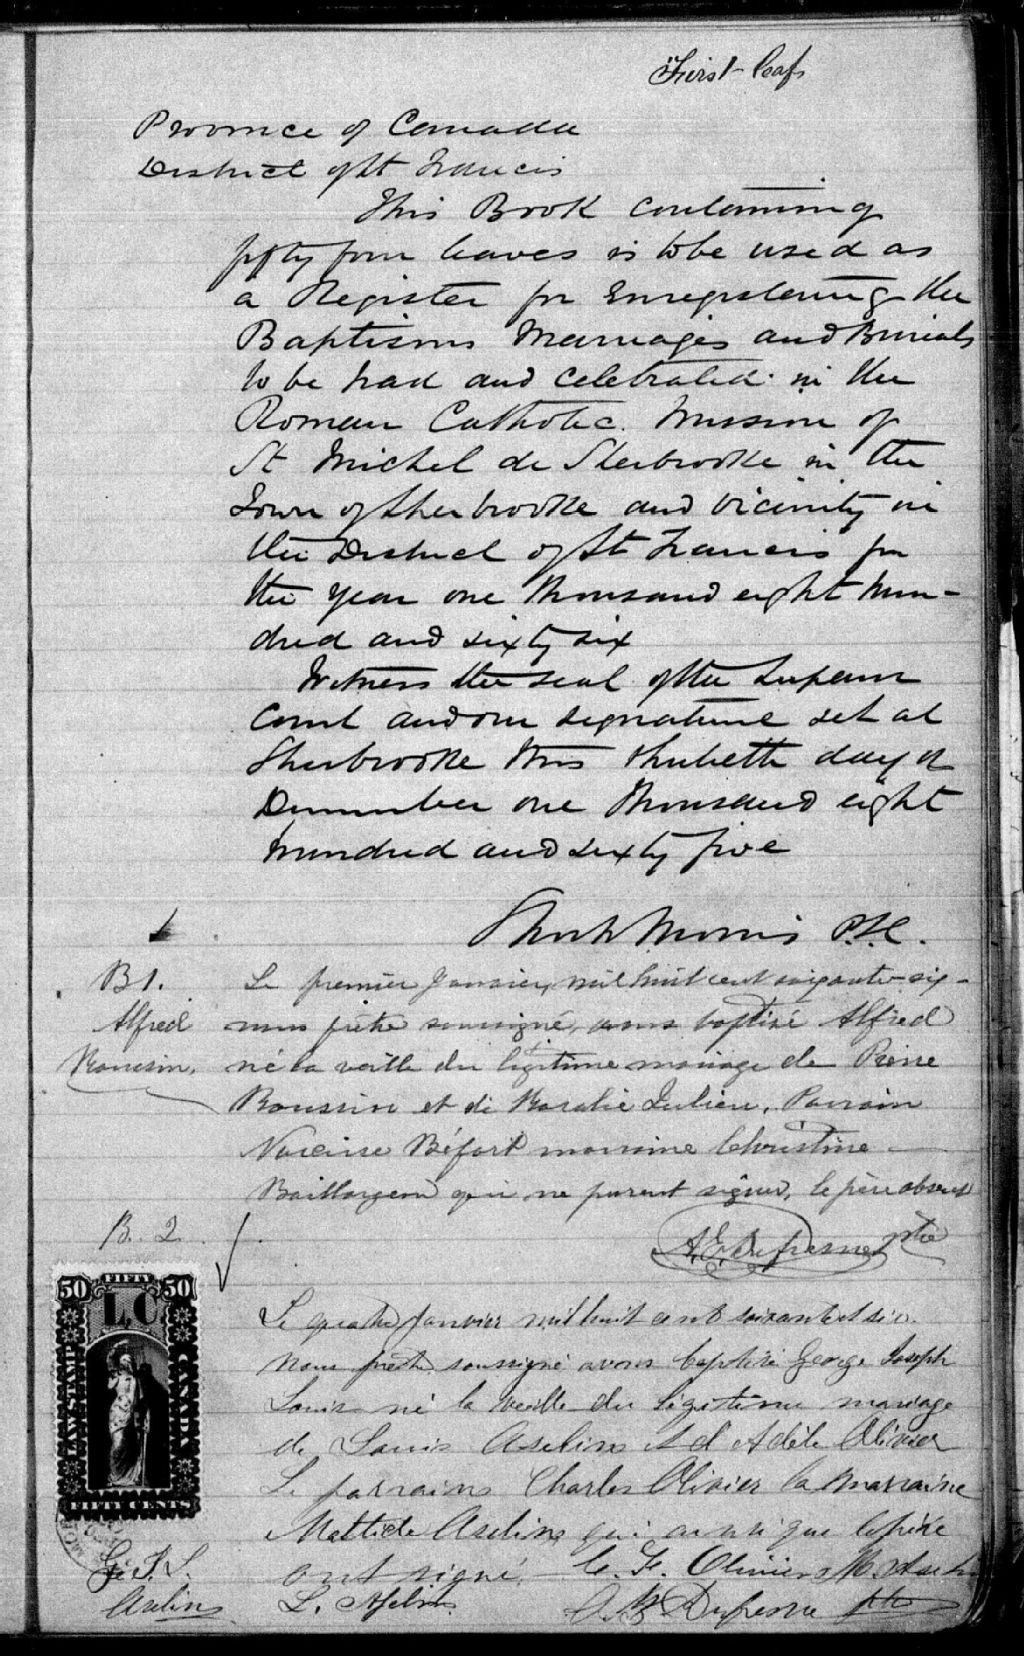 First leaf
Province of Canada
District of St Francis
This Book containing
fifty four leaves is to be used as
a Register for Enregistering the
Baptisms Marriages and Burials
to be had and celebrated in the
Roman Catholic Mission of
St Michel de Sherbrooke in the
Town of Sherbrooke and vicinity in
the District of St Francis for
the year one thousand eight hun-
dred and sixty six
Witness the seal of the Superior
Court and our signature set at
Sherbrooke this thirtieth day of
December one thousand eight
hundred and sixty five
Short Morris P.S.C.
B1.
Alfred
Roussin,
Le premier Janvier, mil huit cent soixante-six-
nous prêtre soussigné, avons baptisé Alfred
né la veille du légitime mariage de Pierre
Roussin et de Rosalie Julien, Parrain
Narcisse Béfort marraine Christine
Baillargeon qui ne purent signer, le père absent
A. E. Dufresne ptre
B. 2
50 FIFTY 50
L C
LAW STAMP
CANADA
FIFTY CENTS
G. J. L.
Aselin
Le quatre Janvier mil huit cent soixante et six
nous prêtre soussigné avons baptisé George Joseph
Louis né la veille du légitime mariage
de Louis Aselin et d'Adèle Olivier
Le parrain Charles Olivier la marraine
Mathilde Aselin qui ainsi que le père
ont signé. C. F. Olivier M. Aselin
L. Aselin
A. E. Dufresne ptre